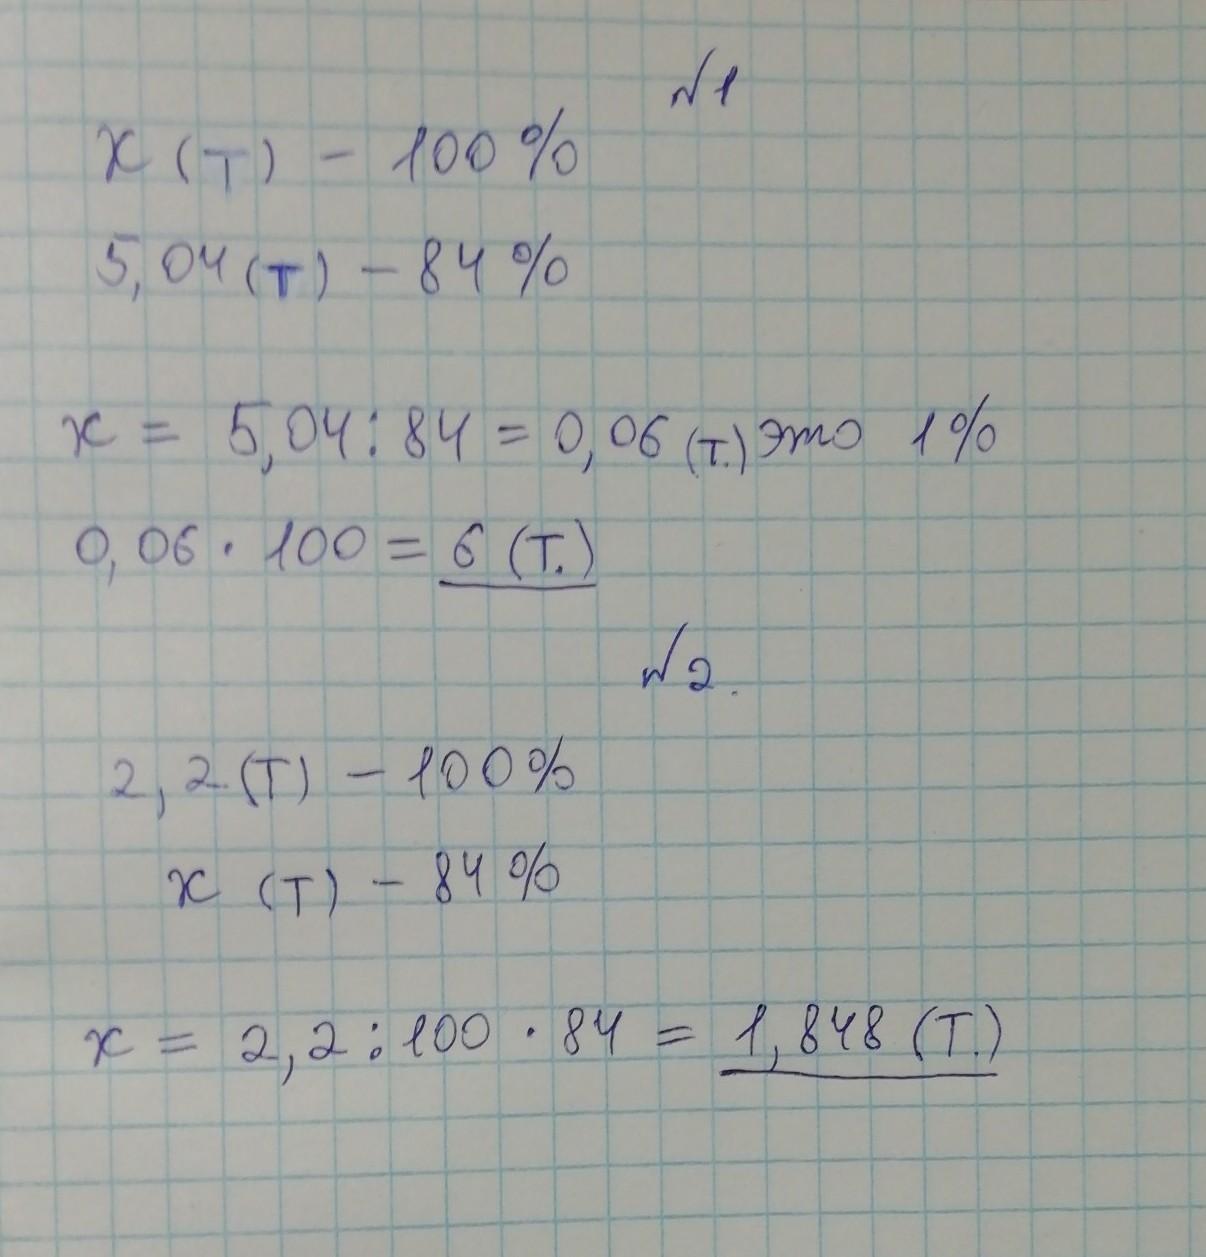 №1
x (т) - 100%
5,04 (т) - 84%
x = 5,04 : 84 = 0,06 (т.) это 1%
0,06 · 100 = 6 (т.)
№2.
2,2 (т) - 100%
x (т) - 84%
x = 2,2 : 100 · 84 = 1,848 (т.)